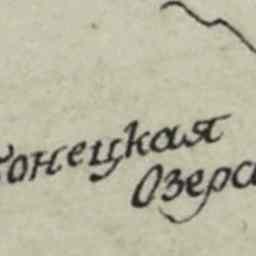 онецкая
Озера